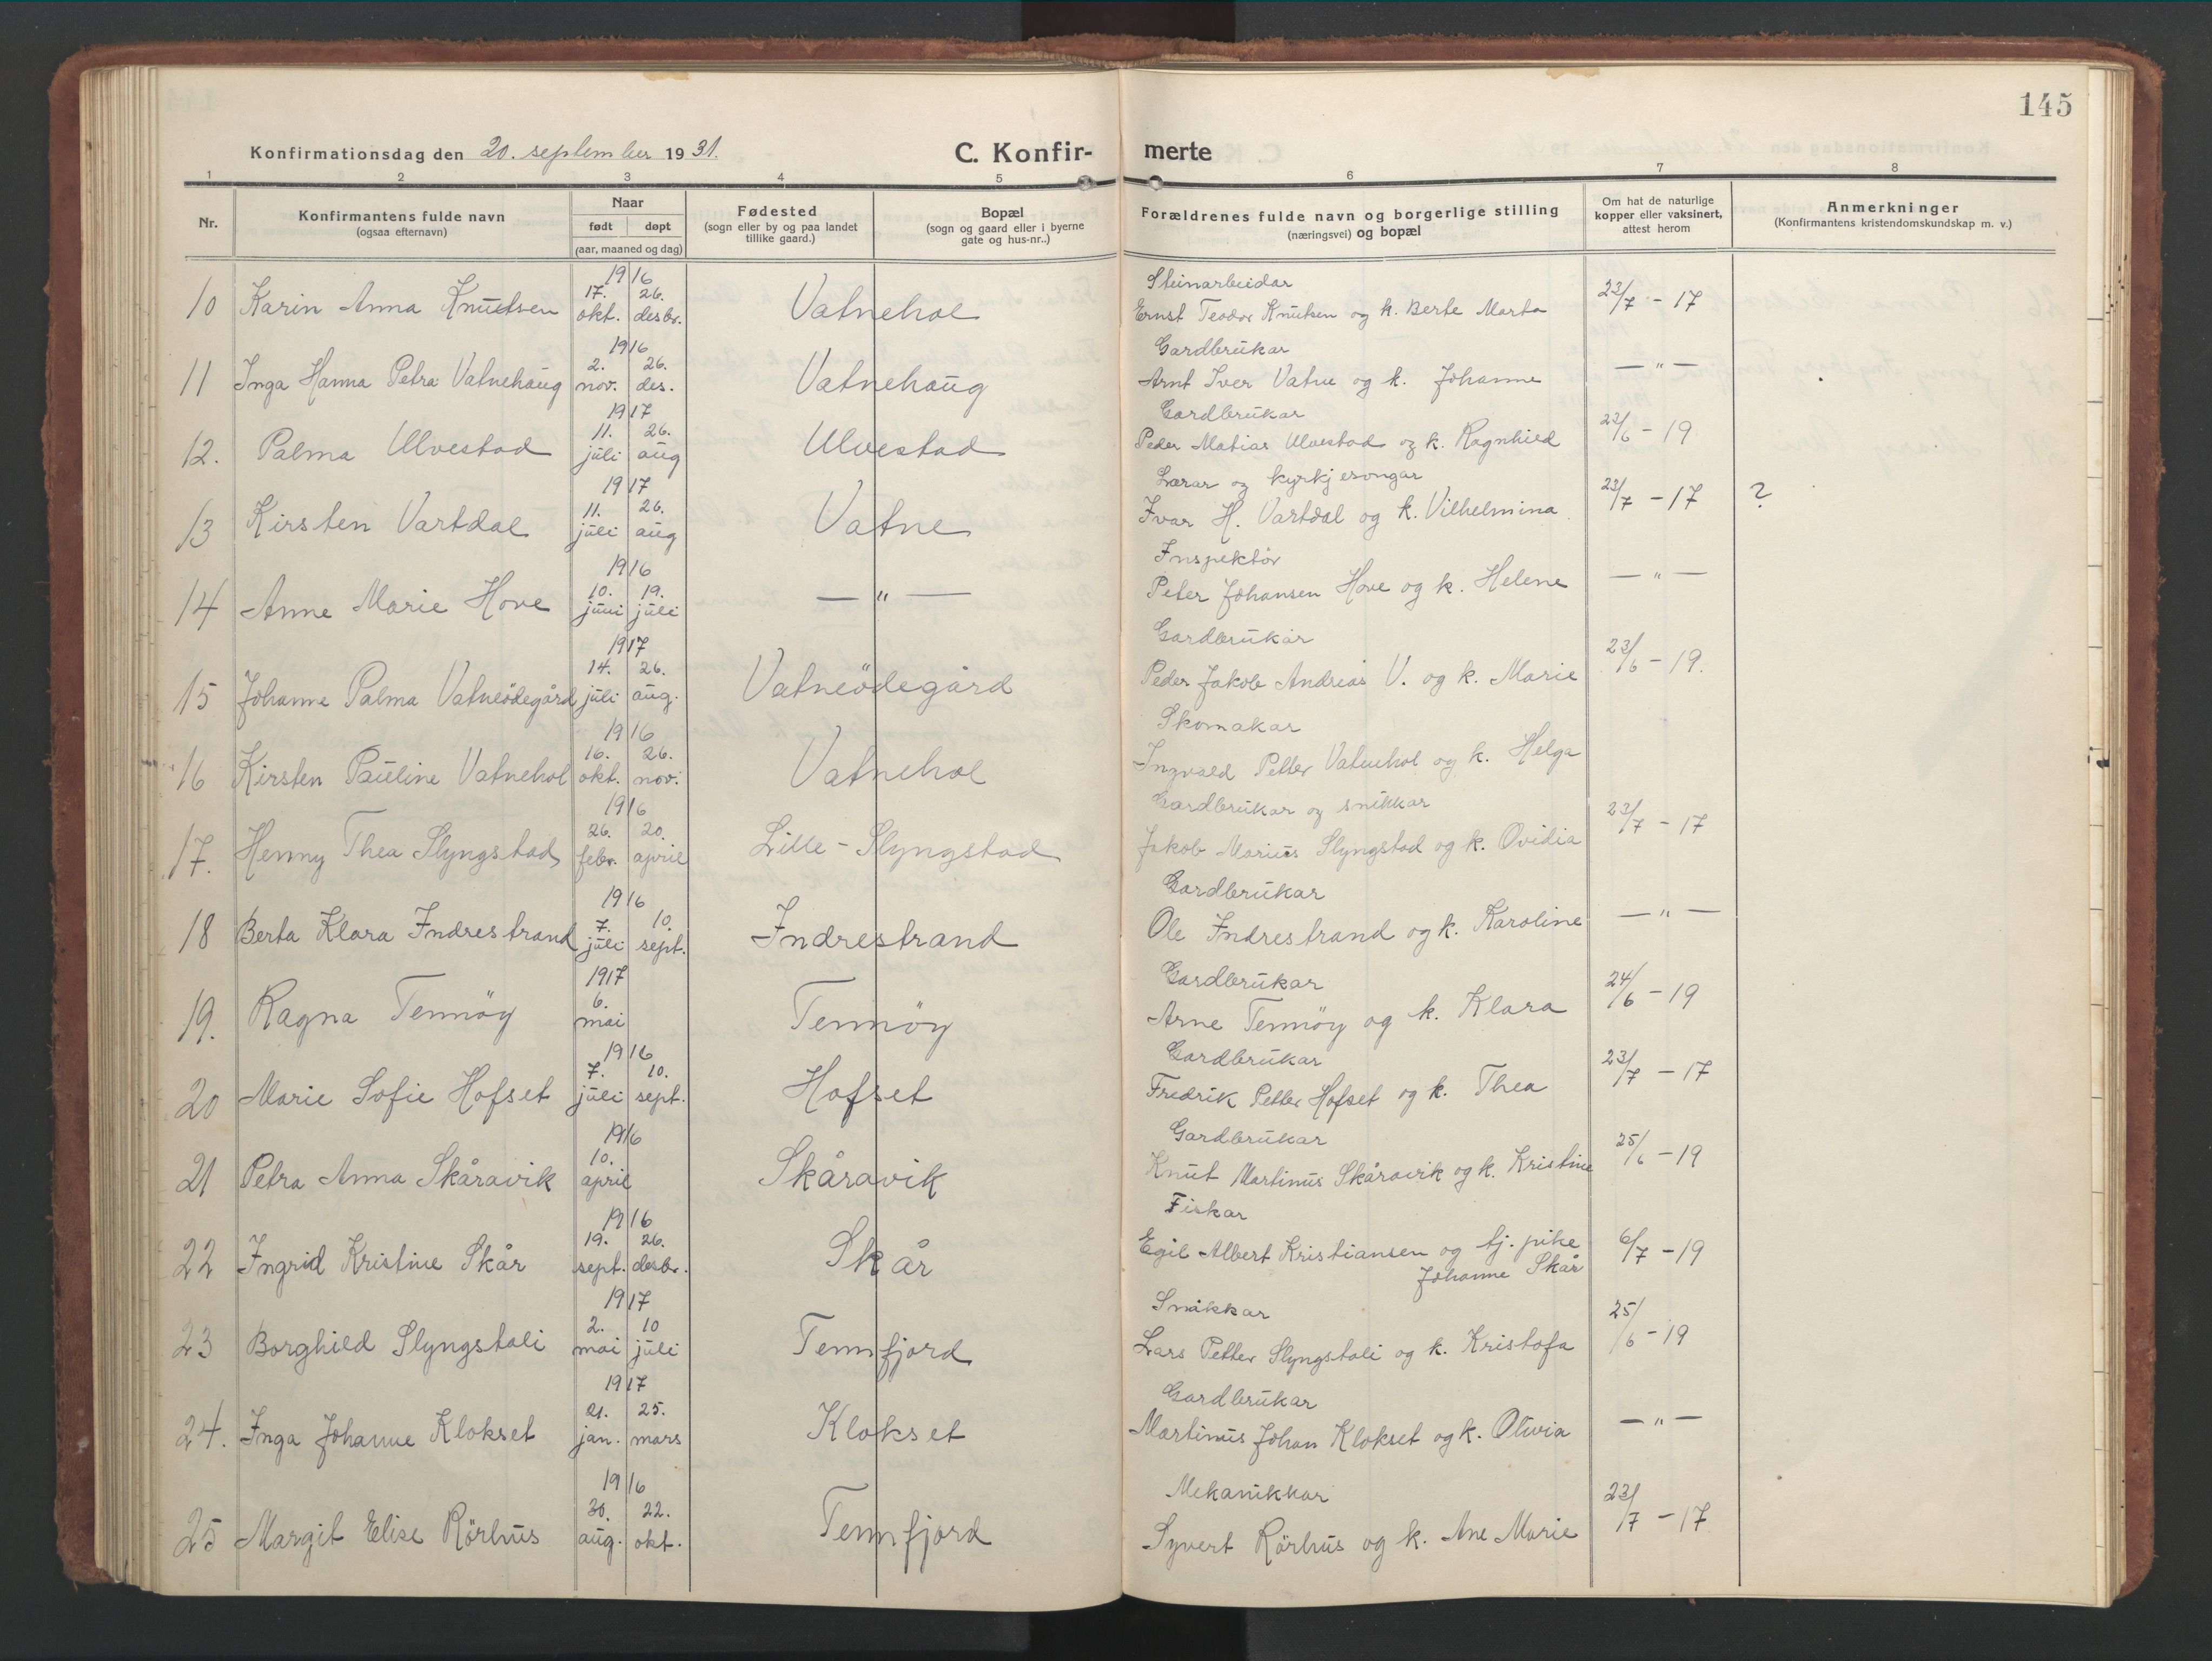 145
Konfirmationsdag den 20. september 1931.
C. Konfir- merte
1 2 3 4 5 6 7 8
Nr.
Konfirmantens fulde navn
(ogsaa efternavn)
Naar
født døpt
(aar, maaned og dag)
Fødested
(sogn eller by og paa landet
tillike gaard.)
Bopæl
(sogn og gaard eller i byerne
gate og hus-nr..)
Forældrenes fulde navn og borgerlige stilling
(næringsvei) og bopæl
Om hat de naturlige
kopper eller vaksinert,
attest herom
Anmerkninger
(Konfirmantens kristendomskundskap m. v.)
1916 Steinarbeidar
10 Karin Anna Knudtsen 17. okt. 26. desbr. Vatnehol Ernst Teodor Knutsen og k. Berte Marta 23/7 - 17
1916 Gardbrukar
11 Inga Hanna Petra Vatnehaug 2. nov. 26. des. Vatnehaug Arnt Iver Vatne og k. Johanne — " —
1917 Gardbrukar
12. Palma Ulvestad 11. juli 26. aug Ulvestad Peder Matias Ulvestad og k. Ragnhild 23/6 - 19
1917 Lærar og kyrkjesongar
13 Kirsten Vartdal 11. juli 26. aug Vatne Ivar H. Vartdal og k. Vilhelmina 23/7 - 17 ?
1916 Inspektör
14 Anne Marie Hove 10. juni 19. juli — " — Peter Johansen Hove og k. Helene — " —
1917 Gardbrukar
15 Johanne Palma Vatneödegård 14. juli 26. aug. Vatneödegård Peder Jakob Andreas V. og k. Marie 23/6 - 19.
1916 Skomakar
16 Kirsten Pauline Vatnehol 16. okt. 26. nov. Vatnehol Ingvald Petter Vatnehol og k. Helga
1916 Gardbrukar og snikkar
17. Henny Thea Slyngstad 26. febr. 20. april Lille-Slyngstad Jakob Marius Slyngstad og k. Ovidia 23/7 - 17
1916 Gardbrukar
18 Berta Klara Indrestrand 7. juli 10. sept. Indrestrand Ole Indrestrand og k. Karoline — " —
1917 Gardbrukar
19. Ragna Tennöy 6. mai Tennöy Arne Tennöy og k. Klara 24/6 - 19
1916 Gardbrukar
20 Marie Sofie Hofset 7. juli 10. sept. Hofset Fredrik Petter Hofset og k. Thea 23/7 - 17
1916 Gardbrukar
21 Petra Anna Skåravik 10. april Skåravik Knut Martinus Skåravik og k. Kristine 25/6 - 19
1916 Fiskar
22 Ingrid Kristine Skår 19. sept. 26. desbr. Skår Egil Albert Kristiansen og tj. pike 6/7 - 19
Johanne Skår
1917 Snikkar
23 Borghild Slyngstali 2. mai 10 juli Tennfjord Lars Petter Slyngstali og k. Kristofa 25/6 - 19
1917 Gardbrukar
24. Inga Johanne Klokset 21. jan. 25. mars Klokset Martinus Johan Klokset og k. Olivia — " —
1916 Mekanikkar
25 Margit Elise Rörhus 30. aug. 22. okt. Tennfjord Syvert Rörhus og k. Ane Marie 23/7 - 17